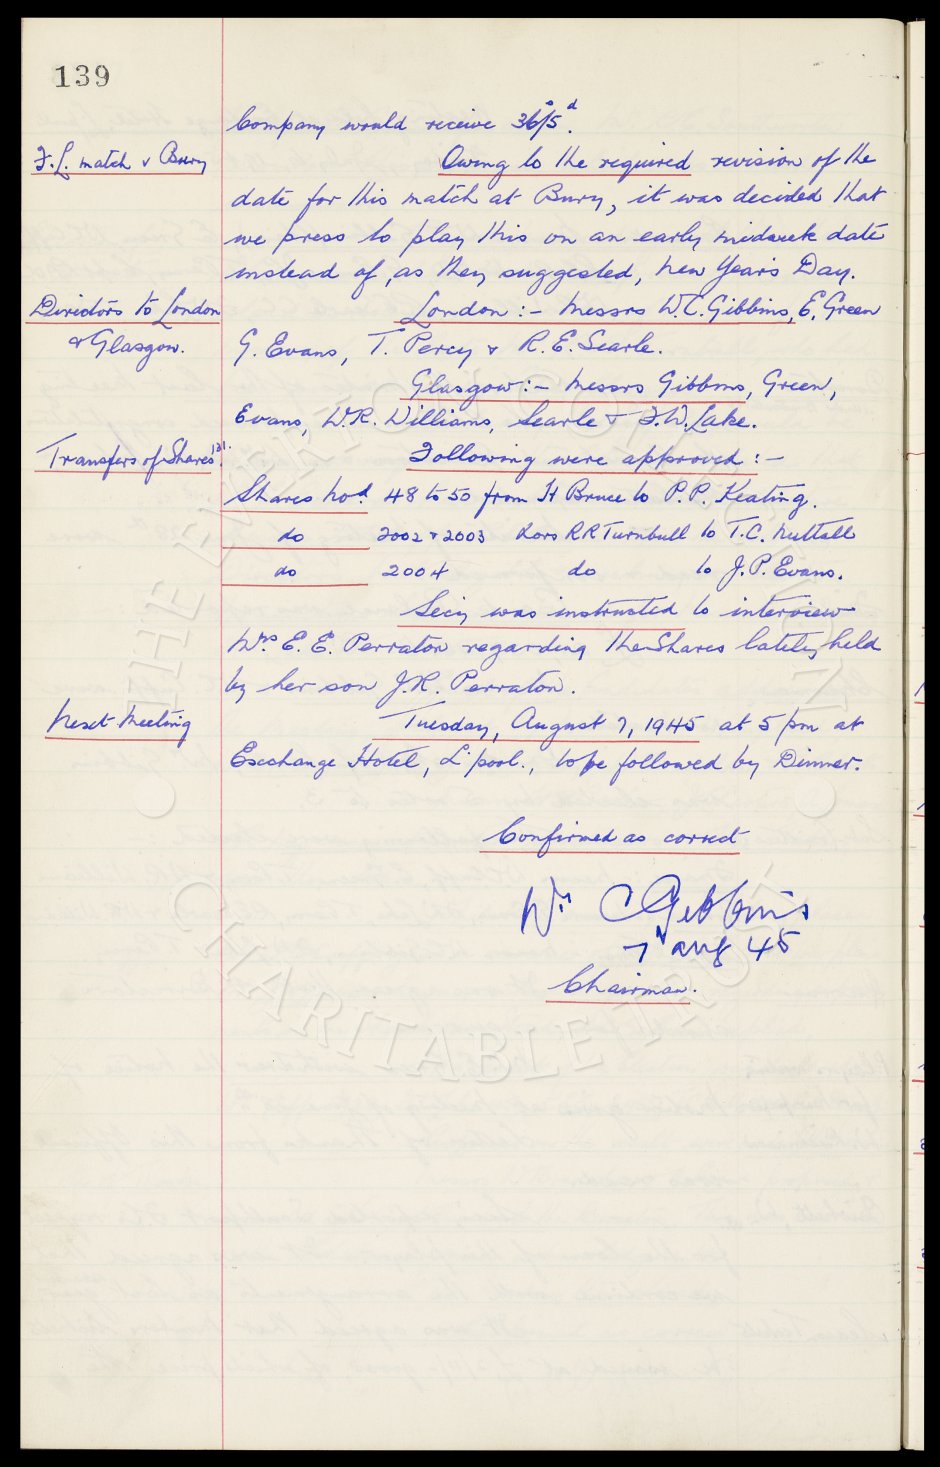 139
Company would receive 36/5d.
F.L. match v Bury
Owing to the required revision of the
date for this match at Bury, it was decided that
we press to play this on an early midweek date
instead of, as they suggested, New Year's Day.
Directors to London
& Glasgow.
London :- Messrs W.C. Gibbins, E. Green
G. Evans, T. Percy & R.E. Searle.
Glasgow :- Messrs Gibbins, Green,
Evans, W.R. Williams, Searle & F.W. Lake.
Transfers of Shares
Following were approved :-
Shares No. 48 to 50 from H Bruce to P.P. Keating.
do 2002 & 2003 R R Turnbull to T.C. Nuttall
do 2004 do to J.P. Evans.
Secy was instructed to interview
Mrs E. E. Perraton regarding the Shares lately held
by her son J.R. Perraton.
Next Meeting
Tuesday, August 7, 1945 at 5 pm at
Exchange Hotel, L'pool., to be followed by Dinner.
Confirmed as correct
Wm C Gibbins
7 Aug 45
Chairman.
THE EVERTON COLLECTION
CHARITABLE TRUST